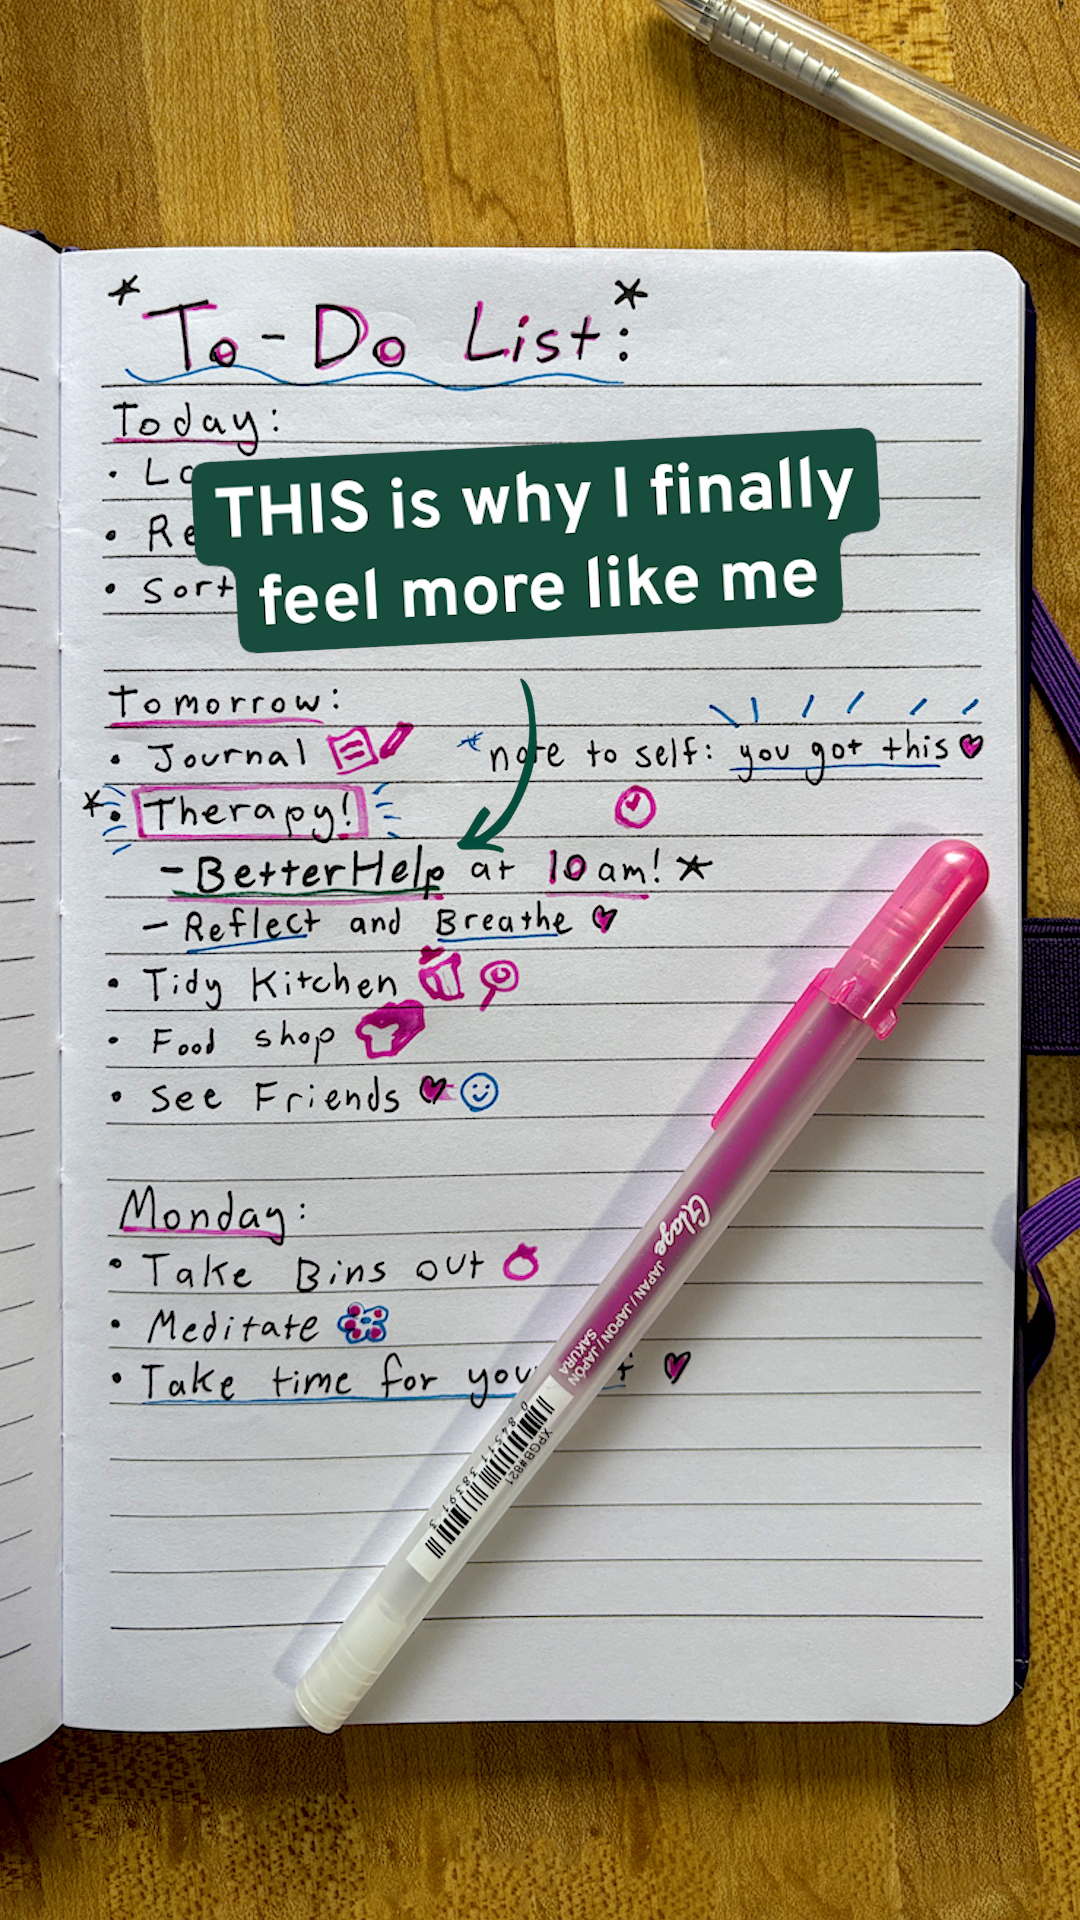 To-Do List:
Today:
THIS is why I finally
feel more like me
Tomorrow:
• Journal
*note to self: you got this
* • Therapy!
- BetterHelp at 10am!
- Reflect and Breathe
• Tidy Kitchen
• Food shop
• See Friends
Monday:
• Take Bins out
• Meditate
• Take time for
Glaze JAPAN / JAPON / JAPÓN
SAKURA
XPGB#821
0 84511 38391 3